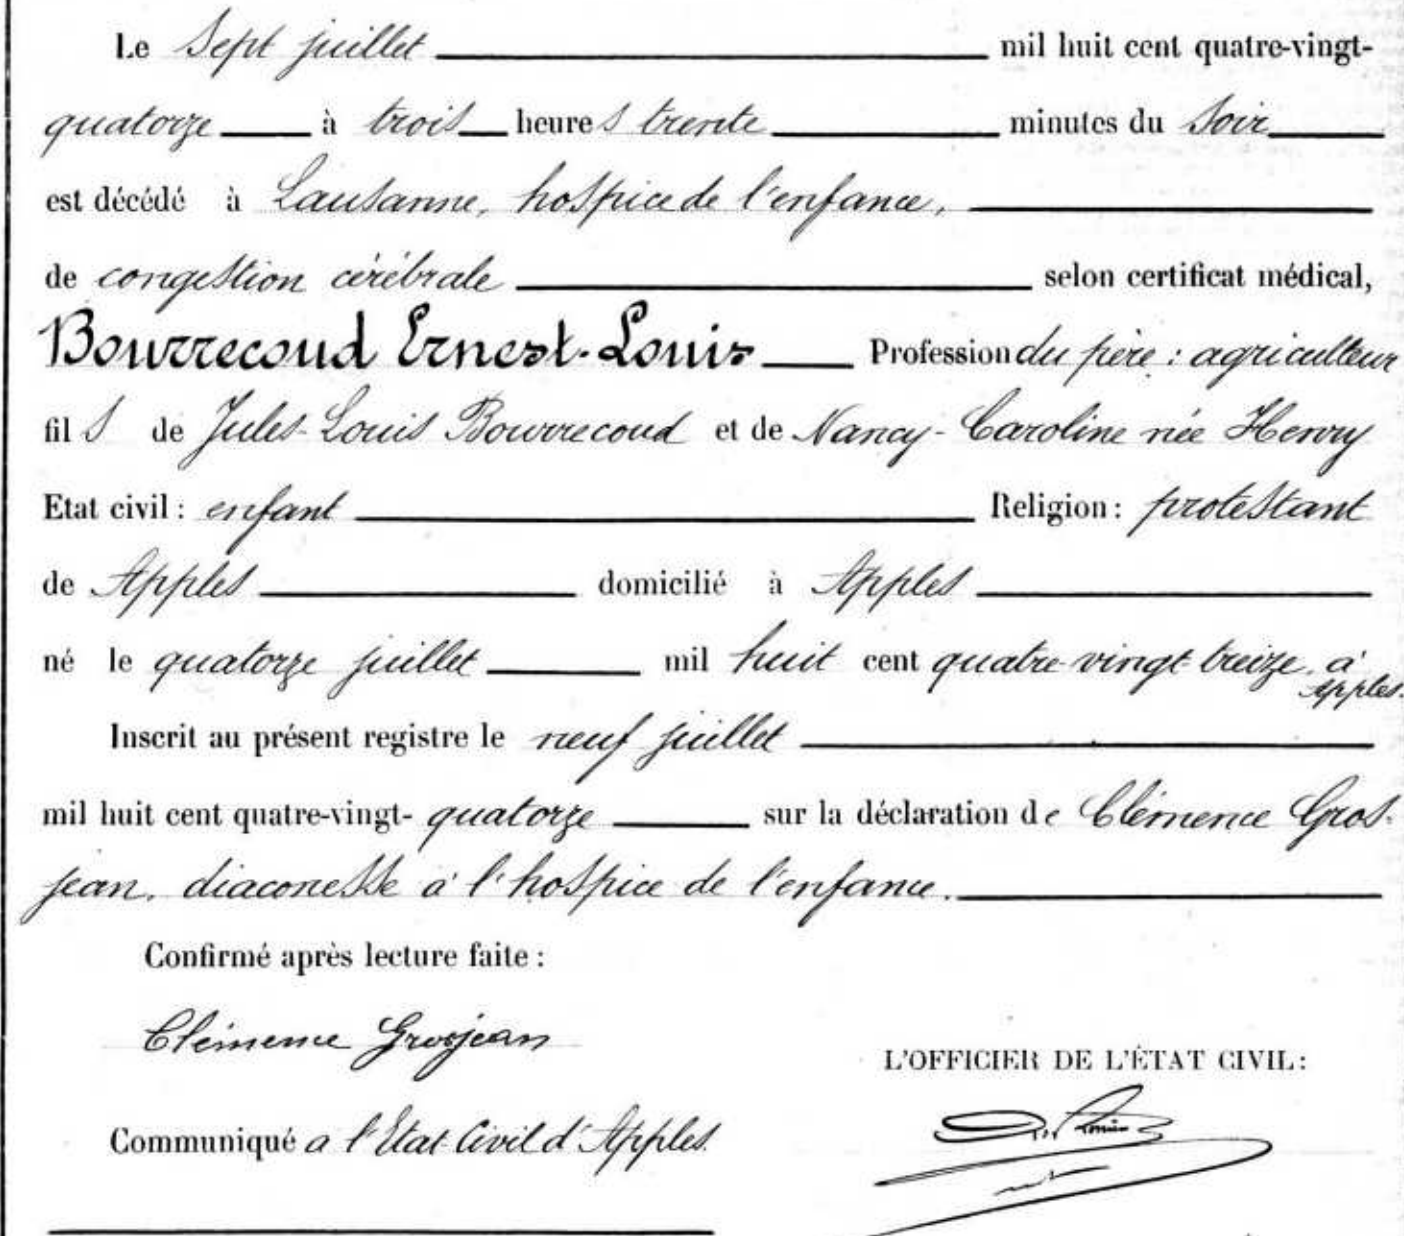 Le sept juillet mil huit cent quatre-vingt-
quatorze à trois heures trente minutes du soir
est décédé à Lausanne, hospice de l'enfance,
de congestion cérébrale selon certificat médical,
Bourrecoud Ernest-Louis Profession du père : agriculteur
fils de Jules-Louis Bourrecoud et de Nancy-Caroline née Henry
Etat civil : enfant Religion : protestant
de Apples domicilié à Apples
né le quatorze juillet mil huit cent quatre-vingt-treize, à
Apples.
Inscrit au présent registre le neuf juillet
mil huit cent quatre-vingt- quatorze sur la déclaration de Clémence Gros-
jean, diaconesse à l'hospice de l'enfance.
Confirmé après lecture faite :
Clémence Grosjean
L'OFFICIER DE L'ÉTAT CIVIL :
Communiqué a l'Etat Civil d'Apples.